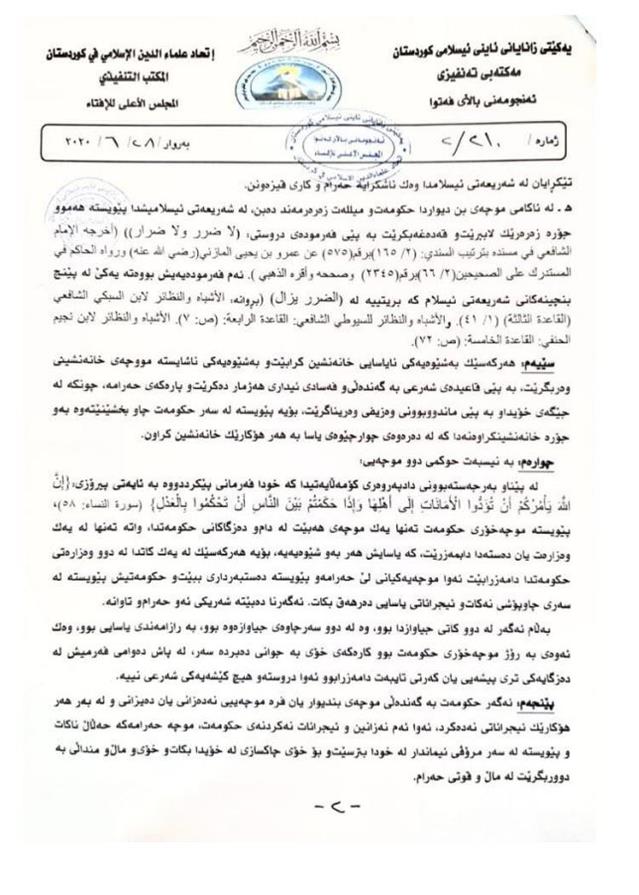 بسم الله الرحمن الرحيم
یەکێتی زانایانی ئاینی ئیسلامی کوردستان
مەکتەبی تەنفیزی
ئەنجومەنی بالآی فەتوا
إتحاد علماء الدين الإسلامي في كوردستان
المكتب التنفيذي
المجلس الأعلى للإفتاء
ژمارە/ ٢/٢١٠
بەروار/ ٢٨/ ٦/ ٢٠٢٠
تێکڕایان لە شەریعەتی ئیسلامدا وەك ئاشکرایە حەرام و کاری قێزەونن.
هـ ـ لە ئاکامی موچەی بن دیواردا حکومەت و میللەت زەرەرمەند دەبن، لە شەریعەتی ئیسلامیشدا پێویستە هەموو
جۆرە زەرەرێك لاببرێت و قەدەغەبکرێت بە پێی فەرمودەی دروستی: ((لا ضرر ولا ضرار)) (أخرجه الإمام
الشافعي في مسنده بترتيب السندي: (٢/ ١٦٥)برقم(٥٧٥) عن عمرو بن يحيى المازني(رضي الله عنه) ورواه الحاكم في
المستدرك على الصحيحين(٢/ ٦٦)برقم(٢٣٤٥) وصححه وأقره الذهبي ). ئەم فەرمودەیەیش بووەتە یەکێ لە پێنج
بنچینەکانی شەریعەتی ئیسلام کە بریتییە لە (الضرر يزال) (بڕوانە، الأشباه والنظائر لابن السبكي الشافعي
(القاعدة الثالثة) (١/ ٤١). والأشباه والنظائر للسيوطي الشافعي: القاعدة الرابعة: (ص: ٧). الأشباه والنظائر لابن نجيم
الحنفي: القاعدة الخامسة: (ص: ٧٢).
سێیەم: هەرکەسێك بەشێوەیەکی نایاسایی خانەنشین کرابێت و بەشێوەیەکی ناشایستە مووچەی خانەنشینی
وەربگرێت، بە پێی قاعیدەی شەرعی بە گەندەڵی و فەسادی ئیداری هەژمار دەکرێت و پارەکەی حەرامە، چونکە لە
جێگەی خۆیداو بە پێی ماندووبوونی وەزیفی وەریناگرێت، بۆیە پێویستە لە سەر حکومەت چاو بخشێنێتەوە بەو
جۆرە خانەنشینکراوەنەدا کە لە دەرەوەی چوارچێوەی یاسا بە هەر هۆکارێك خانەنشین کراون.
چوارەم: بە نیسبەت حوکمی دوو موچەیی:
لە پێناو بەرجەستەبوونی دادپەروەری کۆمەڵایەتیدا کە خودا فەرمانی پێکردووە بە ئایەتی پیرۆزی: {إِنَّ
اللَّهَ يَأْمُرُكُمْ أَنْ تُؤَدُّوا الْأَمَانَاتِ إِلَى أَهْلِهَا وَإِذَا حَكَمْتُمْ بَيْنَ النَّاسِ أَنْ تَحْكُمُوا بِالْعَدْلِ} (سورة النساء: ٥٨)،
پێویستە موچەخۆری حکومەت تەنها یەك موچەی هەبێت لە دام و دەزگاکانی حکومەتدا، واتە تەنها لە یەك
وەزارەت یان دەستەدا دابمەزرێت، کە یاسایش هەر بەو شێوەیەیە، بۆیە هەرکەسێك لە یەك کاتدا لە دوو وەزارەتی
حکومەتدا دامەزرابێت ئەوا موچەیەکیانی لێ حەرامەو پێویستە دەستبەرداری ببێت و حکومەتیش پێویستە لە
سەری چاوپۆشی نەکات و ئیجرائاتی یاسایی دەرهەق بکات. ئەگەرنا دەبێتە شەریکی ئەو حەرام و تاوانە.
بەڵام ئەگەر لە دوو کاتی جیاوازدا بوو، وە لە دوو سەرچاوەی جیاوازەوە بوو، بە رازامەندی یاسایی بوو، وەك
ئەوەی بە رۆژ موچەخۆری حکومەت بوو کارەکەی خۆی بە جوانی دەبردە سەر، لە پاش دەوامی فەرمیش لە
دەزگایەکی تری پیشەیی یان کەرتی تایبەت دامەزرابوو ئەوا دروستە و هیچ کێشەیەکی شەرعی نییە.
پێنجەم: ئەگەر حکومەت بە گەندەڵی موچەی بندیوار یان فرە موچەیی نەدەزانی یان دەیزانی و لە بەر هەر
هۆکارێك ئیجرائاتی نەدەکرد، ئەوا ئەم نەزانین و ئیجرائات نەکردنەی حکومەت، موچە حەرامەکە حەڵاڵ ناکات
و پێویستە لە سەر مرۆڤی ئیماندار لە خودا بترسێت و بۆ خۆی چاکسازی لە خۆیدا بکات و خۆی و ماڵ و منداڵی بە
دووربگرێت لە ماڵ و قوتی حەرام.
-٢-